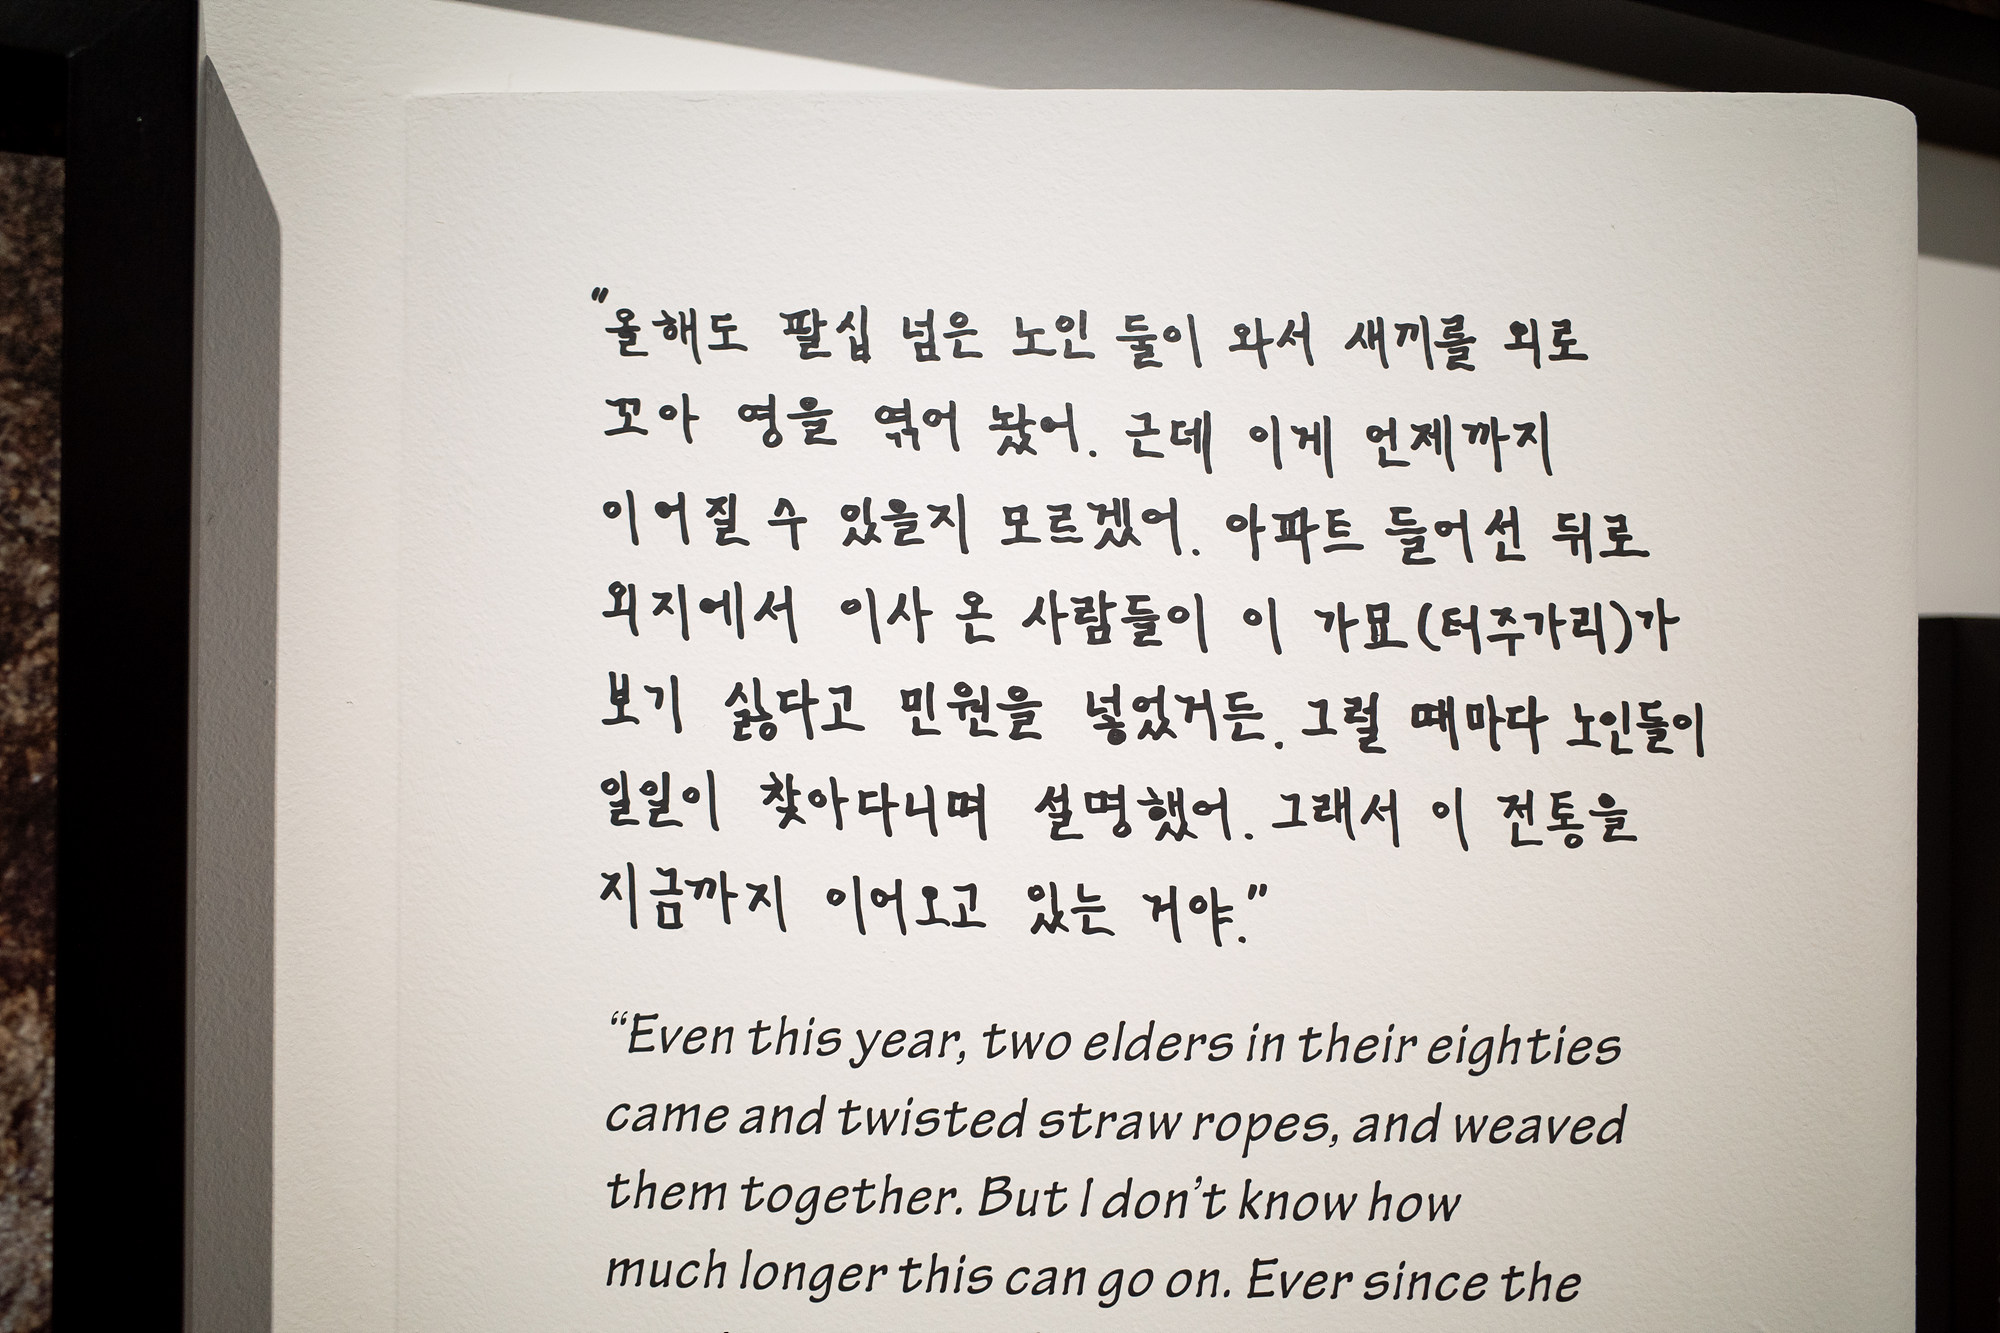 "올해도 팔십 넘은 노인 둘이 와서 새끼를 외로
꼬아 영을 엮어 놨어. 근데 이게 언제까지
이어질 수 있을지 모르겠어. 아파트 들어선 뒤로
외지에서 이사 온 사람들이 이 가묘(터주가리)가
보기 싫다고 민원을 넣었거든. 그럴 때마다 노인들이
일일이 찾아다니며 설명했어. 그래서 이 전통을
지금까지 이어오고 있는 거야."
“Even this year, two elders in their eighties
came and twisted straw ropes, and weaved
them together. But I don’t know how
much longer this can go on. Ever since the